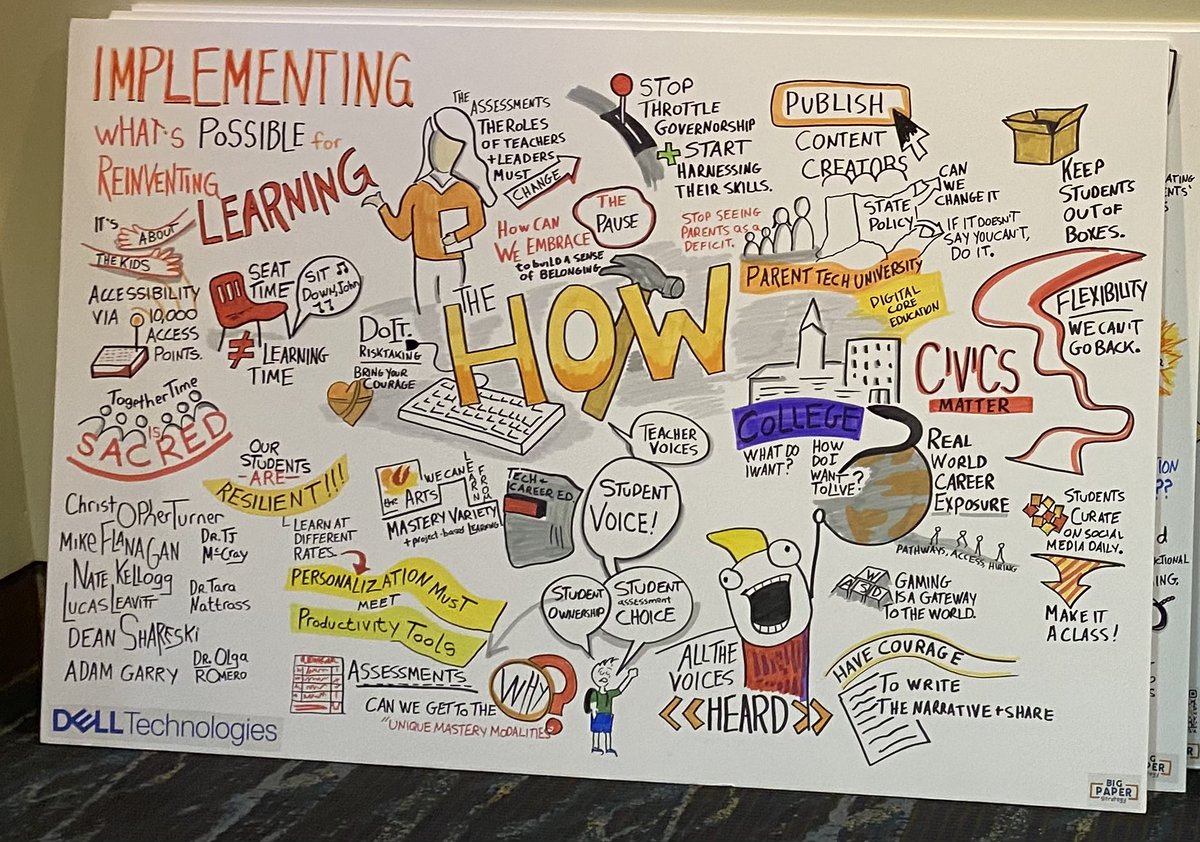 IMPLEMENTING
WHAT'S POSSIBLE for
REINVENTING
LEARNING
IT'S
ABOUT
THE KIDS
ACCESSIBILITY
VIA 10,000
ACCESS
POINTS.
SEAT
TIME
≠ LEARNING
TIME
SIT
DOWN, JOHN
Together Time
IS
SACRED
OUR
STUDENTS
-ARE-
RESILIENT!!!
THE
ASSESSMENTS
THE ROLES
OF TEACHERS
+ LEADERS
MUST
CHANGE
HOW CAN
WE EMBRACE
to BUILD A SENSE
OF BELONGING
THE
PAUSE
STOP
THROTTLE
GOVERNORSHIP
+ START
HARNESSING
THEIR SKILLS.
STOP SEEING
PARENTS as a
DEFICIT.
PUBLISH
CONTENT
CREATORS
STATE
POLICY
CAN
WE
CHANGE IT
IF IT DOESN'T
SAY YOU CAN'T,
DO IT.
KEEP
STUDENTS
OUT OF
BOXES.
PARENT TECH UNIVERSITY
DIGITAL
CORE
EDUCATION
FLEXIBILITY
WE CAN'T
GO BACK.
THE
HOW
DO IT.
RISKTAKING
BRING YOUR
COURAGE
CIVICS
MATTER
COLLEGE
WHAT DO
I WANT?
HOW
DO I
WANT
TO LIVE?
REAL
WORLD
CAREER
EXPOSURE
PATHWAYS, ACCESS, HIRING
STUDENTS
CURATE
ON SOCIAL
MEDIA DAILY.
MAKE IT
A CLASS!
TEACHER
VOICES
STUDENT
VOICE!
STUDENT
OWNERSHIP
STUDENT
assessment
CHOICE
WE CAN LEARN
FROM
the
ARTS
MASTERY VARIETY
+ project-based LEARNING
TECH +
CAREER ED
LEARN AT
DIFFERENT
RATES.
PERSONALIZATION MUST
MEET
Productivity Tools
ASSESSMENTS
CAN WE GET TO THE
WHY?
"UNIQUE MASTERY MODALITIES"
ALL THE
VOICES
<<HEARD>>
W
A S D
GAMING
IS A GATEWAY
TO THE WORLD.
HAVE COURAGE
TO WRITE
THE NARRATIVE + SHARE
CHRISTOPHER TURNER
MIKE FLANAGAN
NATE KELLOGG
LUCAS LEAVITT
DEAN SHARESKI
ADAM GARRY
DR. TJ
McCRAY
DR. Tara
Nattrass
DR. Olga
ROMERO
DELL Technologies
BIG
PAPER
strategy